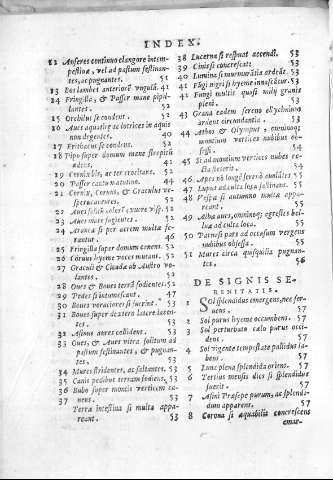 INDEX.
12 Anseres continuo clangore intem-
pestiuæ, vel ad pastum festinan-
tes, ac pugnantes. 51
13 Bos lambet anteriorē vngulā. 41
14 Fringilla, & Passer mane pipi-
lantes. 52
15 Orchilus se condens. 52
16 Aues aquaticæ lotrices in aquis
non degentes. 40
17 Erithacus se condens. 52
18 super domum mane strepitū
41
19 Cornix bis, ac ter crocitans. 52
20 Passer cantu matutino. 44
21 Cornix, Coruus, Graculus ve-
speri 52
22 52
23 Aues mare fugientes. 52
24 Aranea si per aerem multa fe-
rantur. 46
25 Fringillæ super domum canens. 52
26 Coruus hyeme voces mutans. 52
27 Graculi & ab Austro vo-
lantes. 52
28 Oues & Boues terrā fodientes. 52
29 Pedes si intumescant. 47
30 Boues voraciores si fuerint. 53
31 Boues super dextero latere iacen-
tes. 53
32 Asinus aures collidens. 53
33 Oues, & Aues vitra solitum ad
pastum festinantes, & pugnan-
tes. 53
34 Mures stridentes, ac saltantes. 53
35 Canis pedibus terram fodiens. 53
36 Bubo super montis verticem ca-
nens. 53
37 Terra intestina si multa appa-
reant. 53
38 Lucerna si respuat accendi. 53
39 Cinis si concrescat. 53
40 Lumina si ardeāt. 53
41 Fligi nigri si hyeme innascātur. 53
42 Fungi multis quasi milij granis
pleni. 53
43 Grana eadem sereno ellychnium
ardens circundantia. 53
44 Athos & Olympus, omniumq;
montium vertices nubibus ob-
sessi. 54
45 Si ad montium vertices nubes re-
ctæ steterit. 54
46 Apes nō longe seorsū auolātes 55
47 Lupus ad culta loca festinans. 55
48 Vespæ si autumno multæ appa-
reant. 55
49 Alba aues, omniumq; egrestes bel-
luæ ad culta loca. 55
50 Parnes pars ad occasum vergens
nubibus obsessa. 55
51 Mures circa quisquilia pugnan-
tes. 56
DE SIGNIS SE-
RENITATIS.
1 Sol splendidus emergens, nec fer-
uens. 57
2 Sol purus hyeme occumbens. 57
3 Sol perturbato cælo purus occi-
dens. 57
4 Sol vigente tempestate pallidus la-
bens. 57
5 Luna plena splendida oriens. 57
6 Tertius mensis dies si splendidus
fuerit. 57
7 Asini Præsepe purum, ac splendi-
dum apparens. 57
8 Corona si æquabilis concrescens
emar-